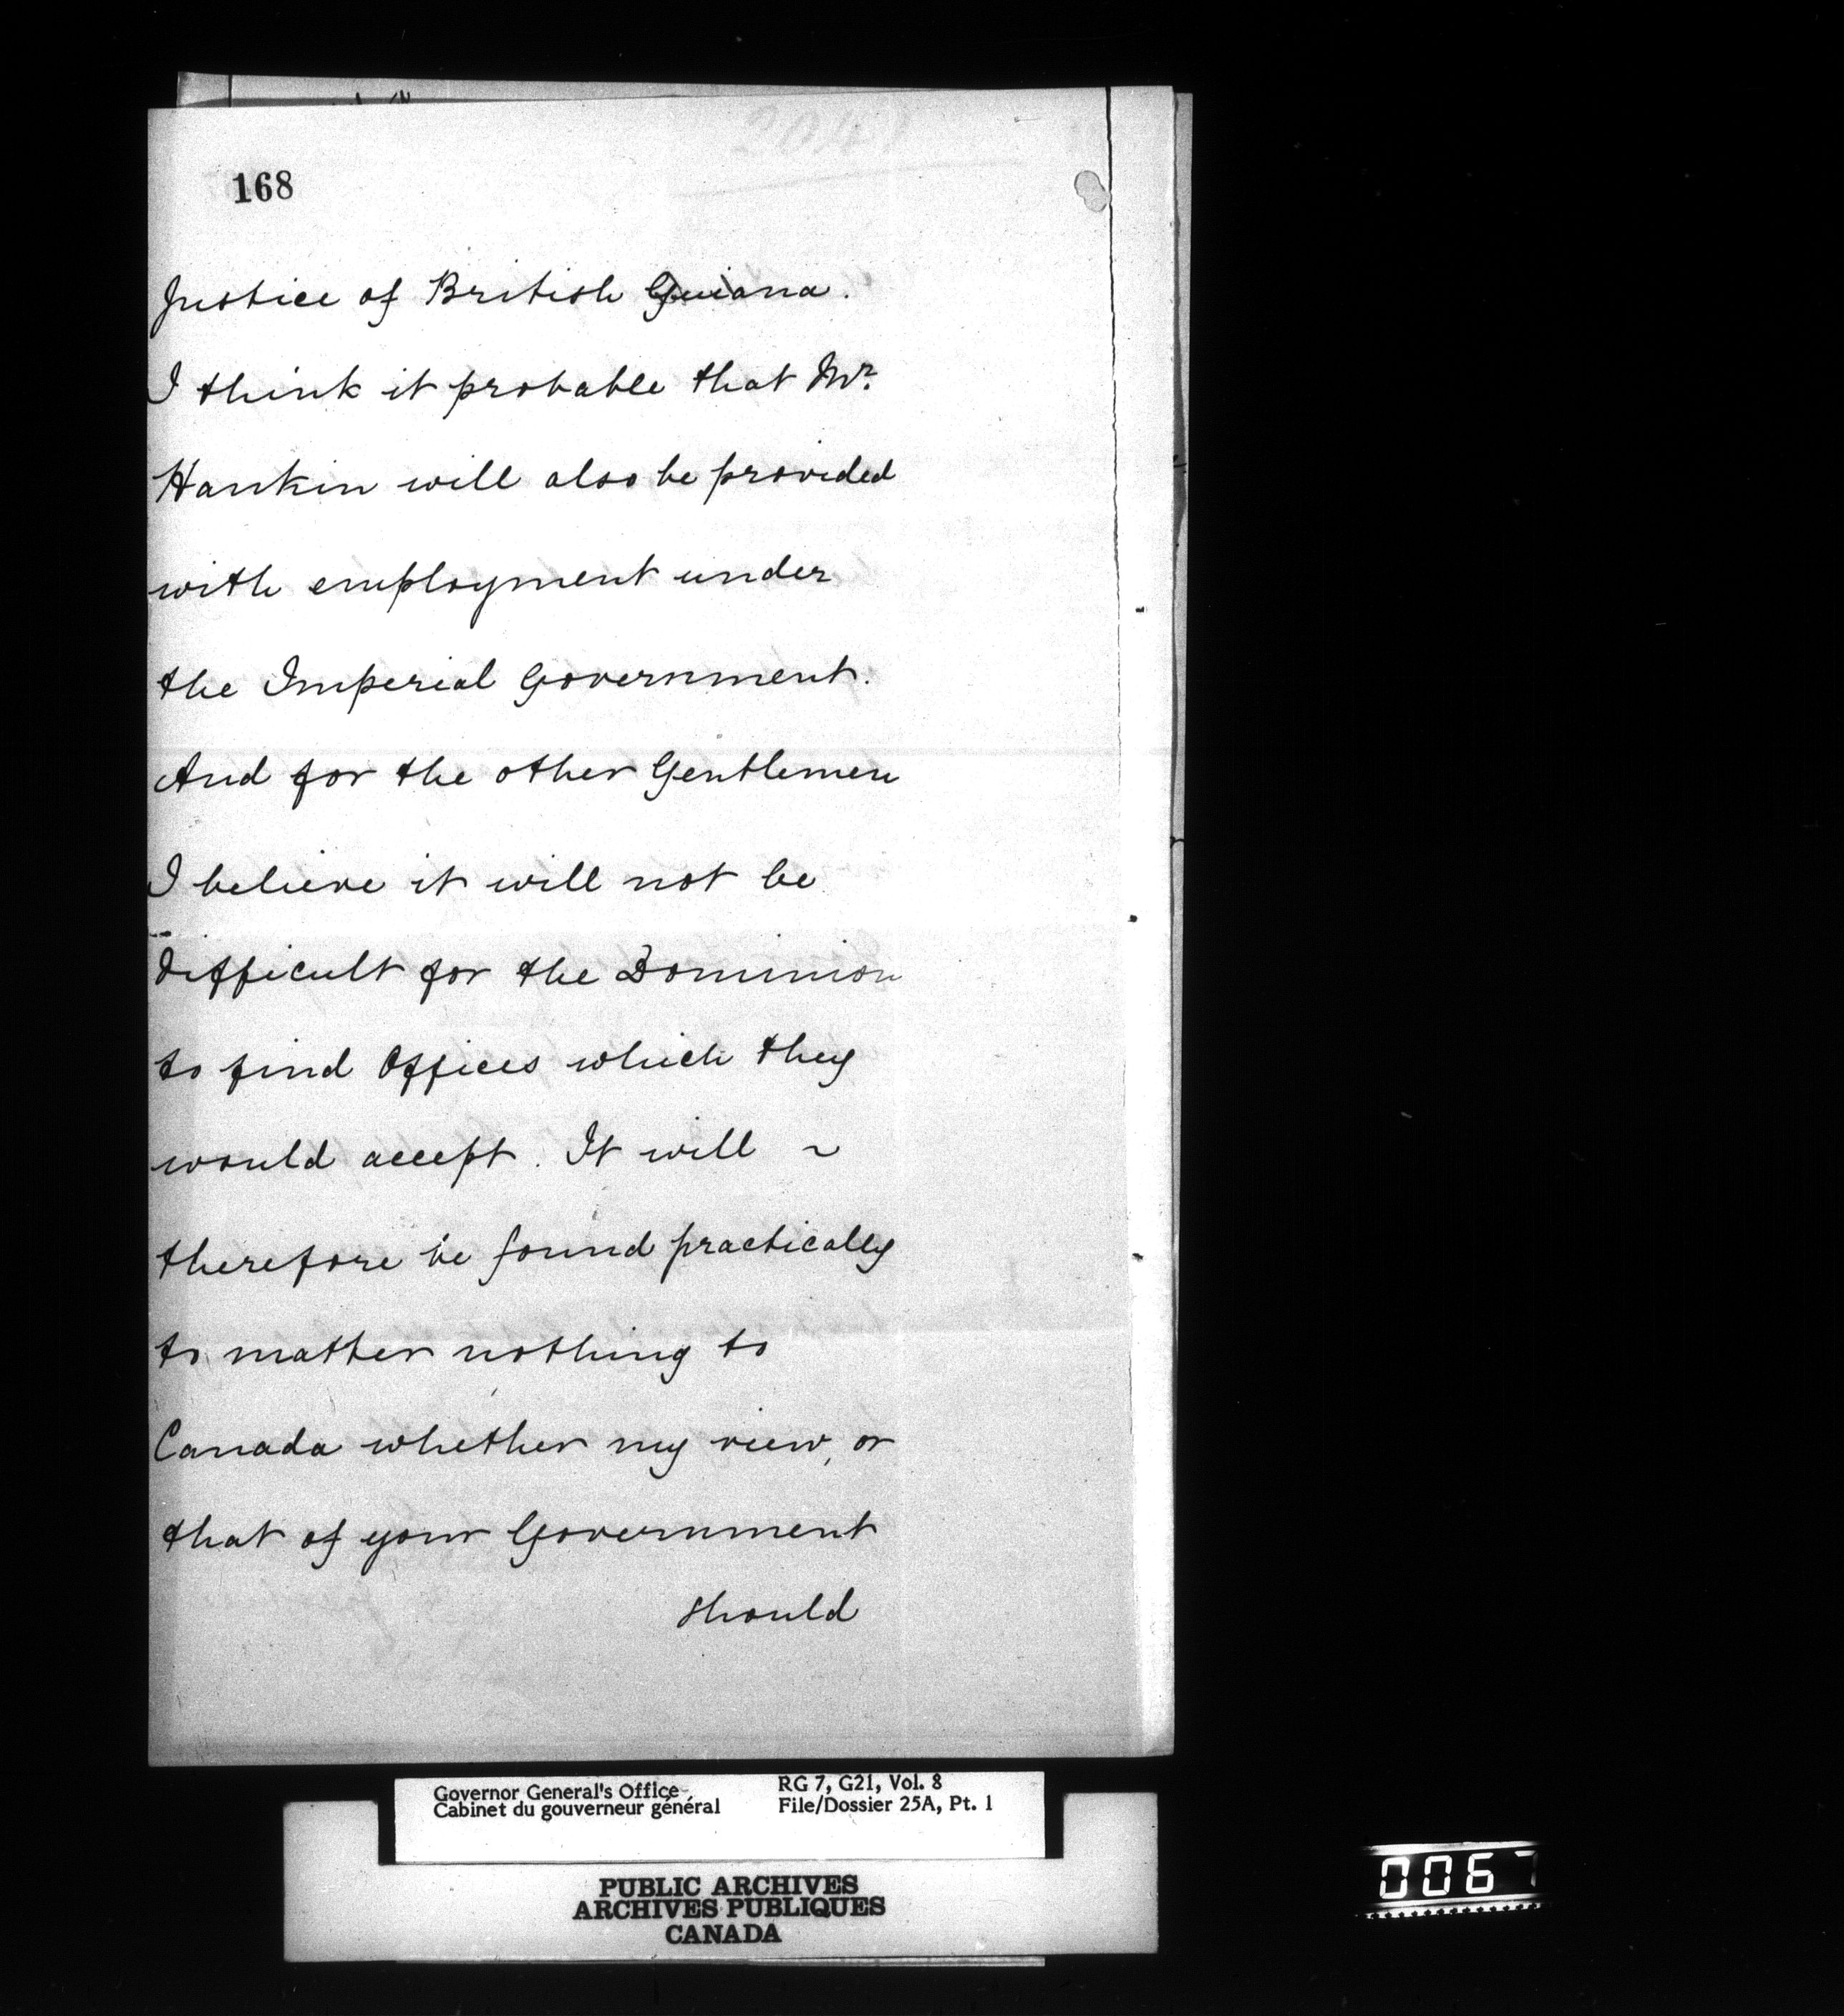 168
Justice of British Guiana.
I think it probable that Mr.
Hankin will also be provided
with employment under
the Imperial Government.
And for the other Gentlemen
I believe it will not be
difficult for the Dominion
to find Offices which they
would accept. It will ~
therefore be found practically
to matter nothing to
Canada whether my view, or
that of your Government
should
Governor General's Office
Cabinet du gouverneur général
RG 7, G21, Vol. 8
File/Dossier 25A, Pt. 1
PUBLIC ARCHIVES
ARCHIVES PUBLIQUES
CANADA
0067